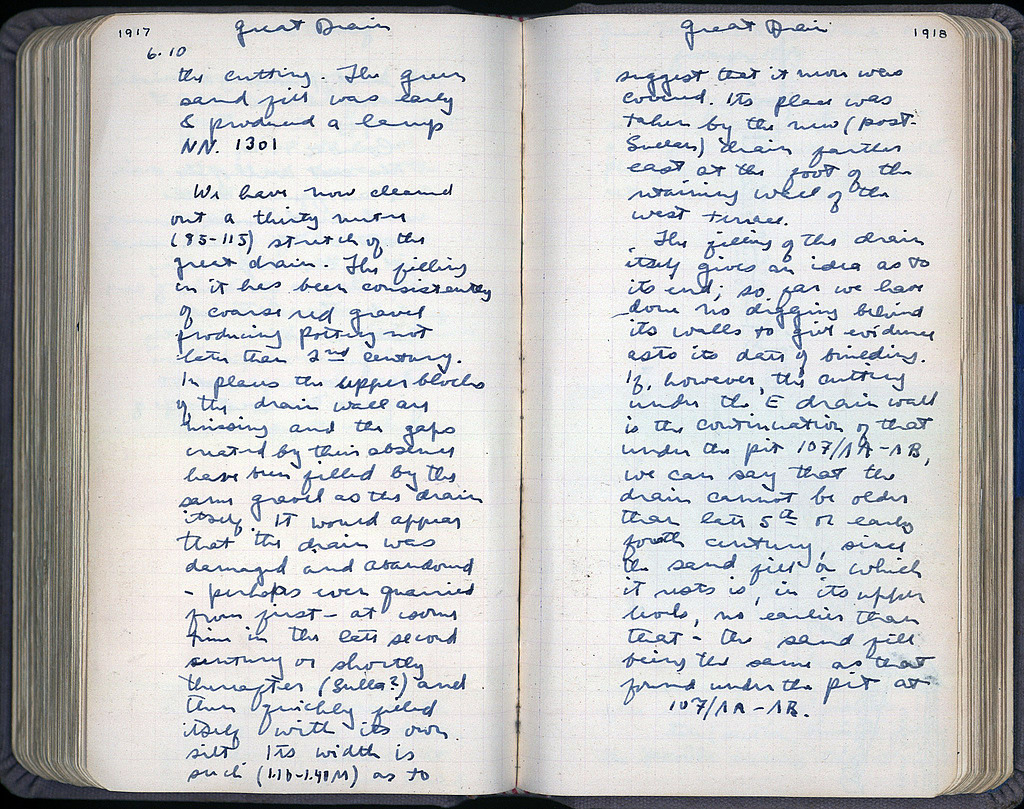 1917
Great Drain
6.10
the cutting. The green
sand fill was early
& produced a lamp
NN. 1301
We have now cleaned
out a thirty metre
(85-115) stretch of the
great drain. The filling
in it has been consistently
of coarse red gravel
producing pottery not
later than 2nd century.
In places the upper blocks
of the drain wall are
missing and the gaps
created by their absence
have been filled by the
same gravel as the drain
itself. It would appear
that the drain was
damaged and abandoned
- perhaps even quarried
from first - at some
time in the late second
century or shortly
thereafter (Sulla?) and
then quickly filled
itself with its own
silt Its width is
such (1.10-1.40M) as to
Great Drain
1918
suggest that it never was
covered. Its place was
taken by the new (post-
Sullan) drain farther
east at the foot of the
retaining wall of the
west terrace.
The filling of the drain
itself gives an idea as to
its end; so far we have
done no digging behind
its walls to give evidence
as to its date of building.
If, however, the cutting
under the E drain wall
is the continuation of that
under the pit 107/ΛA-ΛB,
we can say that the
drain cannot be older
than late 5th or early
fourth century, since
the sand fill on which
it rests is, in its upper
levels, no earlier than
that - the sand fill
being the same as that
found under the pit at
107/ΛA-ΛB.